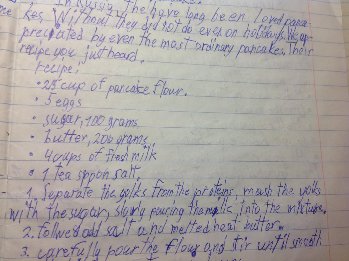 In Russia, the have long been loved panca-
kes. Without they did not do even on holidays. is ap-
preciated by even the most ordinary pancakes. Their
recipe you just heard.
Recipe:
• 2,5 cup of pancake flour.
• 5 eggs
• sugar, 100 grams
• butter, 200 grams,
• 4 cups of fresh milk
• 1 tea spoon salt.
1. Separate the yolks from the proteins, mash the yolks
with the sugar, slowly pouring the milk into the mixture.
2. follwe add salt and melted heat butter.
3. carefully pour the flour and stir until smooth